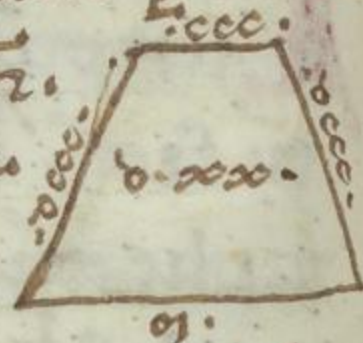 .ccc.
.dccc.
dccc.
d.xx.
m.